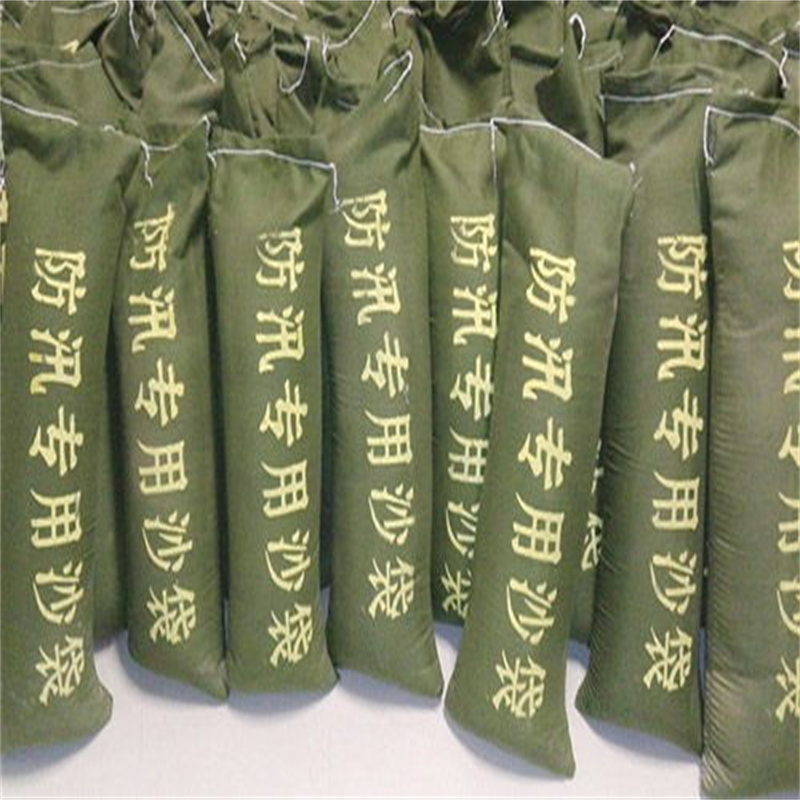 防汛专用沙袋
防汛专用沙袋
防汛专用沙袋
防汛专用沙袋
防汛专用沙
防汛专用沙袋
防汛专用沙袋